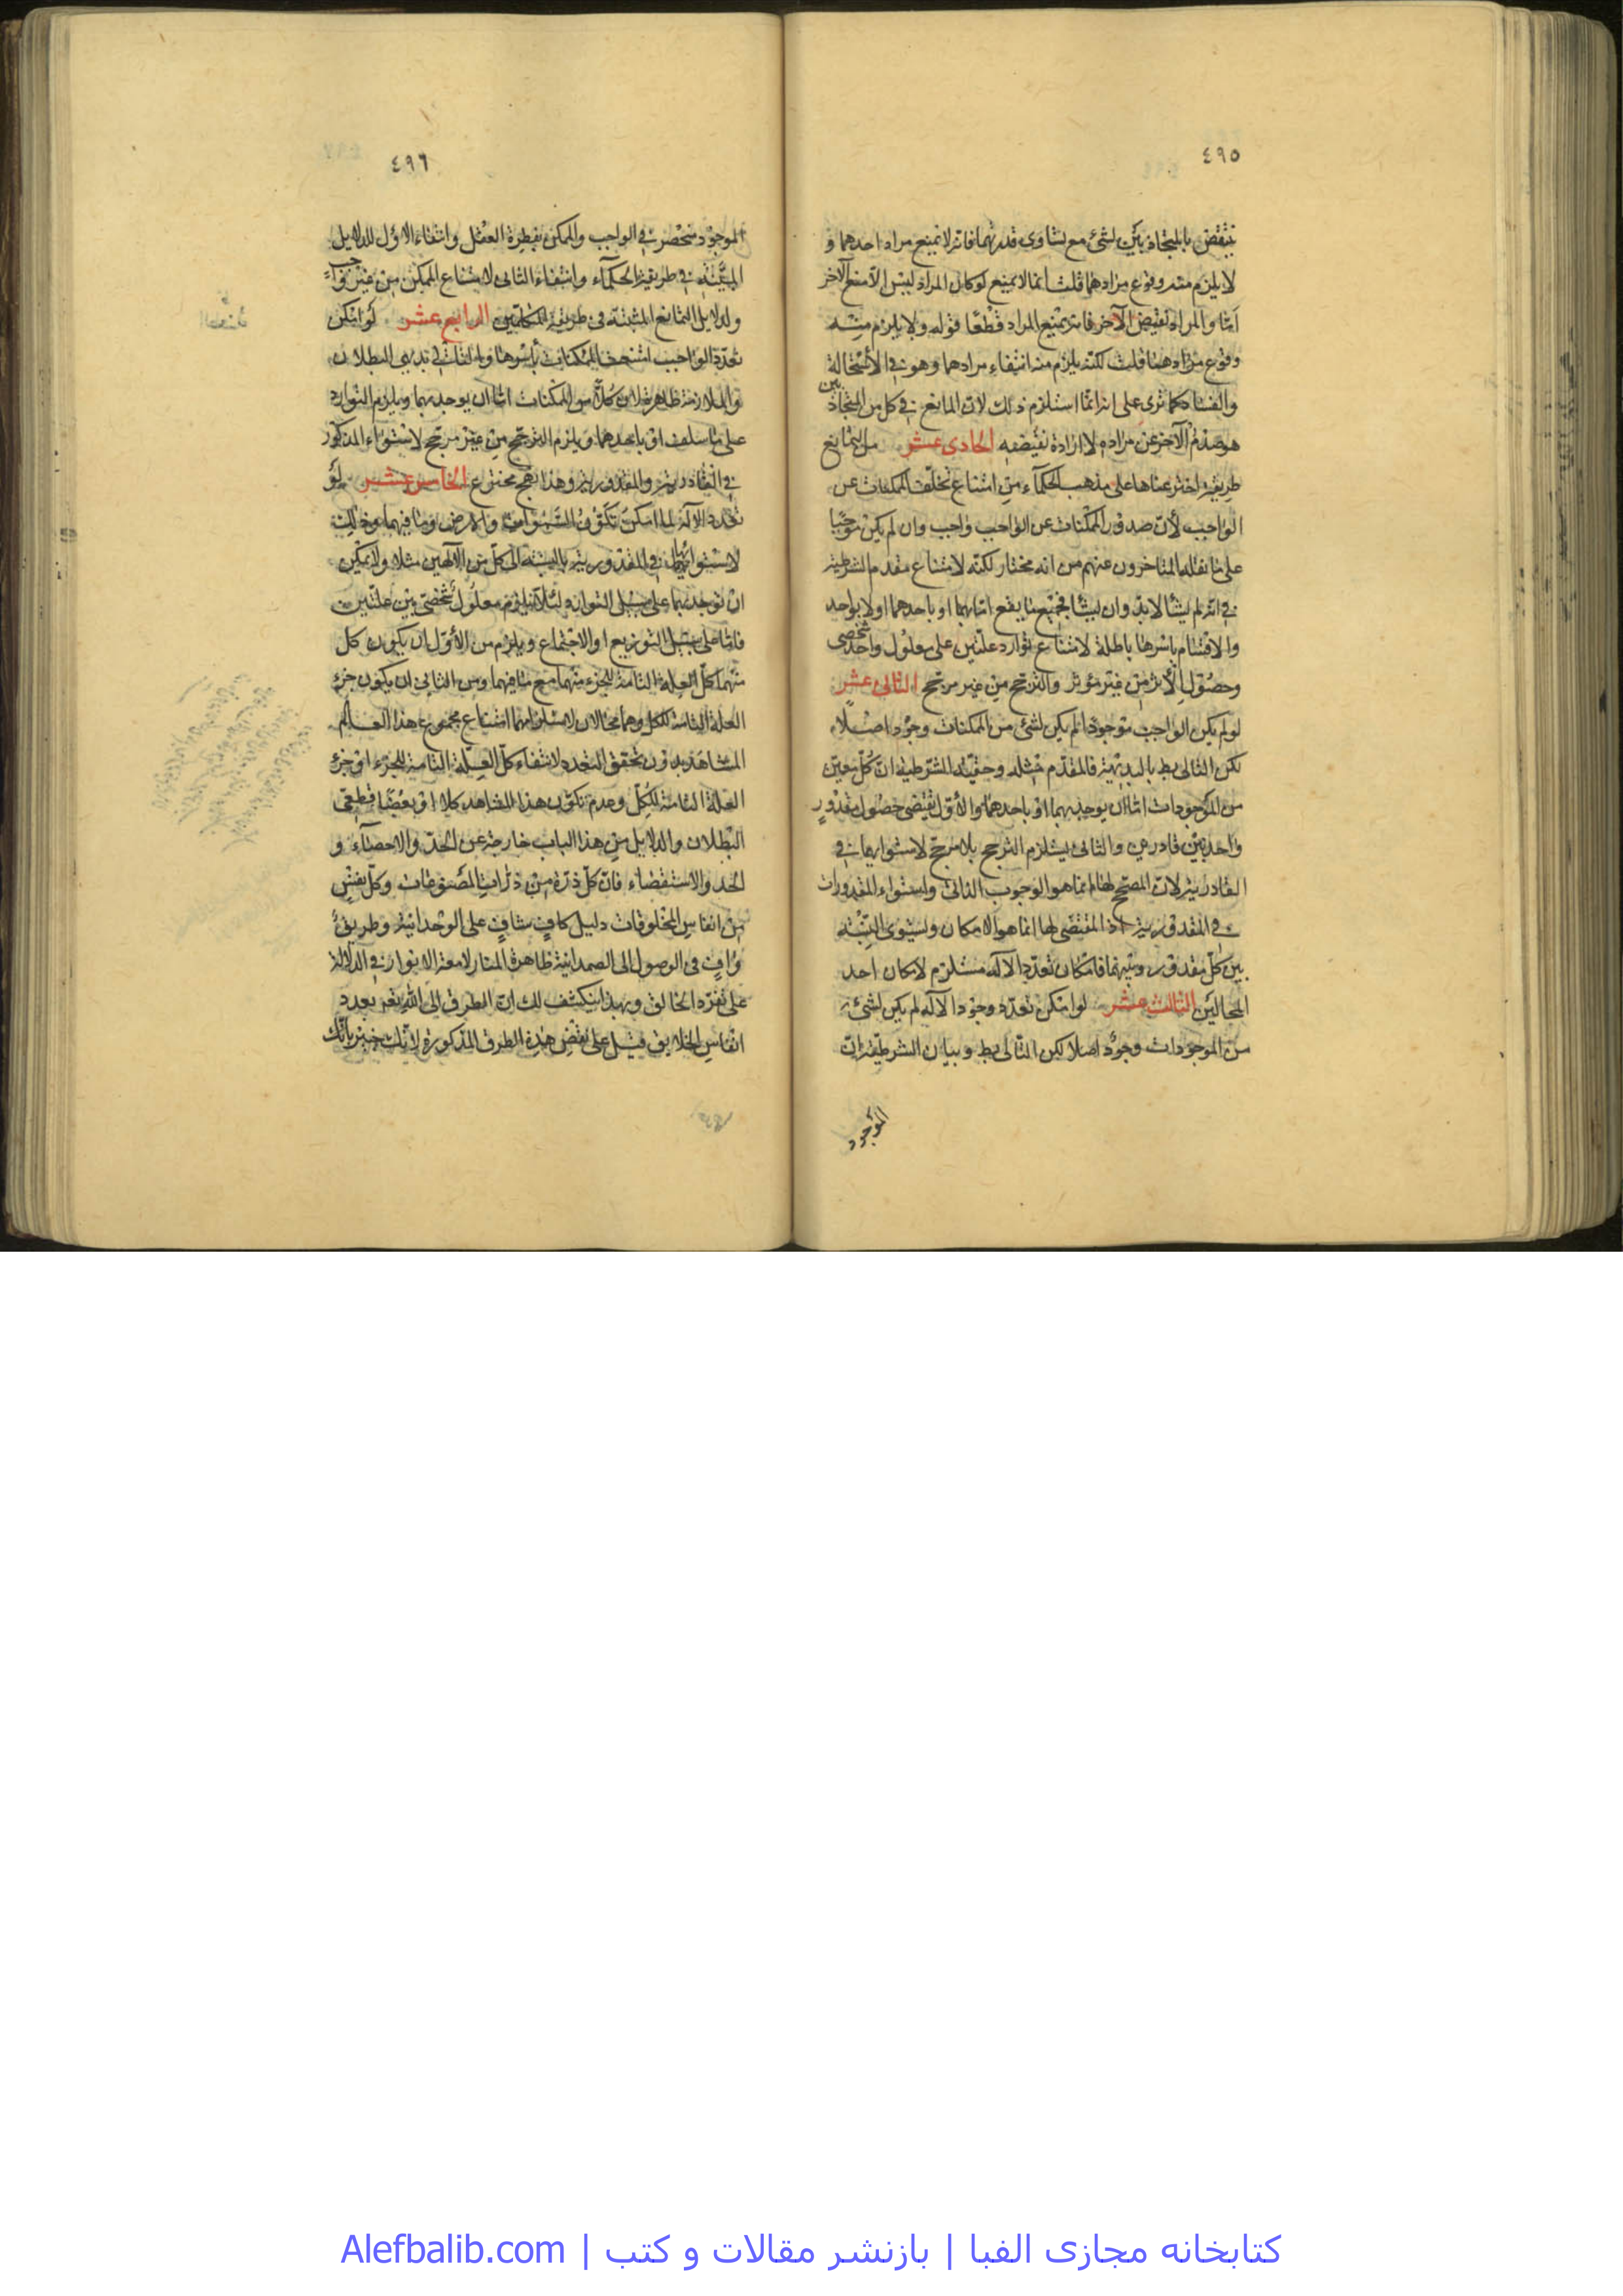 ٤٩٥
ينتقض بالمتجاذبين لشئ مع تساوى قدرتهما فانه لا يمنع مراد احدهما و
لا يلزم منه وقوع مرادهما قلت انما لا يمنع لو كان المراد ليس الا منع الآخر
امّا والمراد نقيض الآخر فانه يمتنع المراد قطعًا قوله ولا يلزم منه
وقوع مرادهما قلت لكنّه يلزم منه انتفاء مرادهما وهو فى الاستحالة
والفساد كما ترى على انه انّما استلزم ذلك لانّ المانع فى كل من المتجاذبين
هو صدم الآخر عن مراده لا ارادة نقيضه الحادى عشر من التمانع
طريقة اخترعناها على مذهب الحكمآء من امتناع تخلّف الممكنات عن
الواجب لأنّ صدور الممكنات عن الواجب واجب وان لم يكن موجبًا
على ما نقله المتاخرون عنهم من انه مختار لكنّه لامتناع مقدم الشرطية
فى انه لم يشأ لابدّ وان يشأ فجميع ما يقع امّا بهما او باحدهما او لا بواحد
والاقسام باسرها باطلة لامتناع توارد علّتين على معلول واحد شخصى
وحصول الأثر من غير مؤثر والترجّح من غير مرجّح الثانى عشر
لو لم يكن الواجب موجودًا لم يكن لشئ من الممكنات وجود اصلًا
لكن التالى بط بالبديهة فالمقدّم مثله وحقيّة الشرطية انّ كلّ معيّن
من الموجودات امّا ان يوجد بهما او باحدهما والأوّل يقتضى حصول مقدور
واحد بين قادرين والثانى يستلزم الترجّح بلا مرجّح لاستوائهما فى
القادرية لانّ المصحّح لها انما هو الوجوب الذاتى واستواء المقدورات
فى المقدورية اذ المقتضى لها انما هو الامكان وتستوى النسبة
بين كلّ مقدور وبينهما فامكان تعدّد الاله مستلزم لامكان احد
المحالين الثالث عشر لو امكن تعدّد وجود الاله لم يكن لشئ
من الموجودات وجود اصلا لكن التالى بط وبيان الشرطية انّ
الموجود
٤٩٦
الموجود منحصر فى الواجب والممكن بفطرة العقل وانتفاء الاوّل للدلايل
المبيّنة فى طريقة الحكمآء وانتفاء الثانى لامتناع الممكن من غير واجب
ولدلايل التمانع المثبتة فى طريقة المتكلّمين الرابع عشر لو امكن
تعدّد الواجب امتنعت الممكنات بأسرها والثانى بديهى البطلان
والملازمة ظاهرة لان كلّا من الممكنات امّا ان يوجد بهما ويلزم التوارد
على ما سلف او باحدهما ويلزم الترجّح من غير مرجّح لاستواء المذكور
فى القادرية والمقدورية وهذا نهج مخترع الخامس عشر لو
تعدد الاله لما امكن تكوّن السموات والارض وما فيهما وذلك
لاستوائهما فى المقدورية بالنسبة الى كلّ من الآلهين مثلا ولا يمكن
ان توجد بهما على سبيل التوارد لئلا يلزم معلول شخصى بين علّتين
فامّا على سبيل التوزيع او الاجتماع ويلزم من الأوّل ان يكون كل
منهما كلّ العلة التامة للجزء منهما مع ما فيهما ومن الثانى ان يكون جزء
العلة التامة للكل وهما محالان لاستلزامهما امتناع مجموع هذا العالم
المشاهد بدون تحقق التعدد لانتفاء كلّ العلّة التامة للجزء او جزء
العلة التامة للكلّ وعدم تكوّن هذا المشاهد كلا او بعضًا قطعى
البطلان والدلايل من هذا الباب خارجة عن الحدّ والاحصآء و
العد والاستقصاء فانّ كلّ ذرّة من ذرّات المصنوعات وكلّ نفس
من انفاس المخلوقات دليل كافٍ شافٍ على الوحدانية وطريق
وافٍ فى الوصول الى الصمدانية ظاهرة المنار لامعة الانوار فى الدلالة
على تفرّد الخالق وبهذا ينكشف لك انّ الطرق الى الله بعدد
انفاس الخلايق فتسل على بعض هذه الطرق المذكورة لانّك خبير بانّك
كتابخانه مجازی الفبا | بازنشر مقالات و کتب | Alefbalib.com